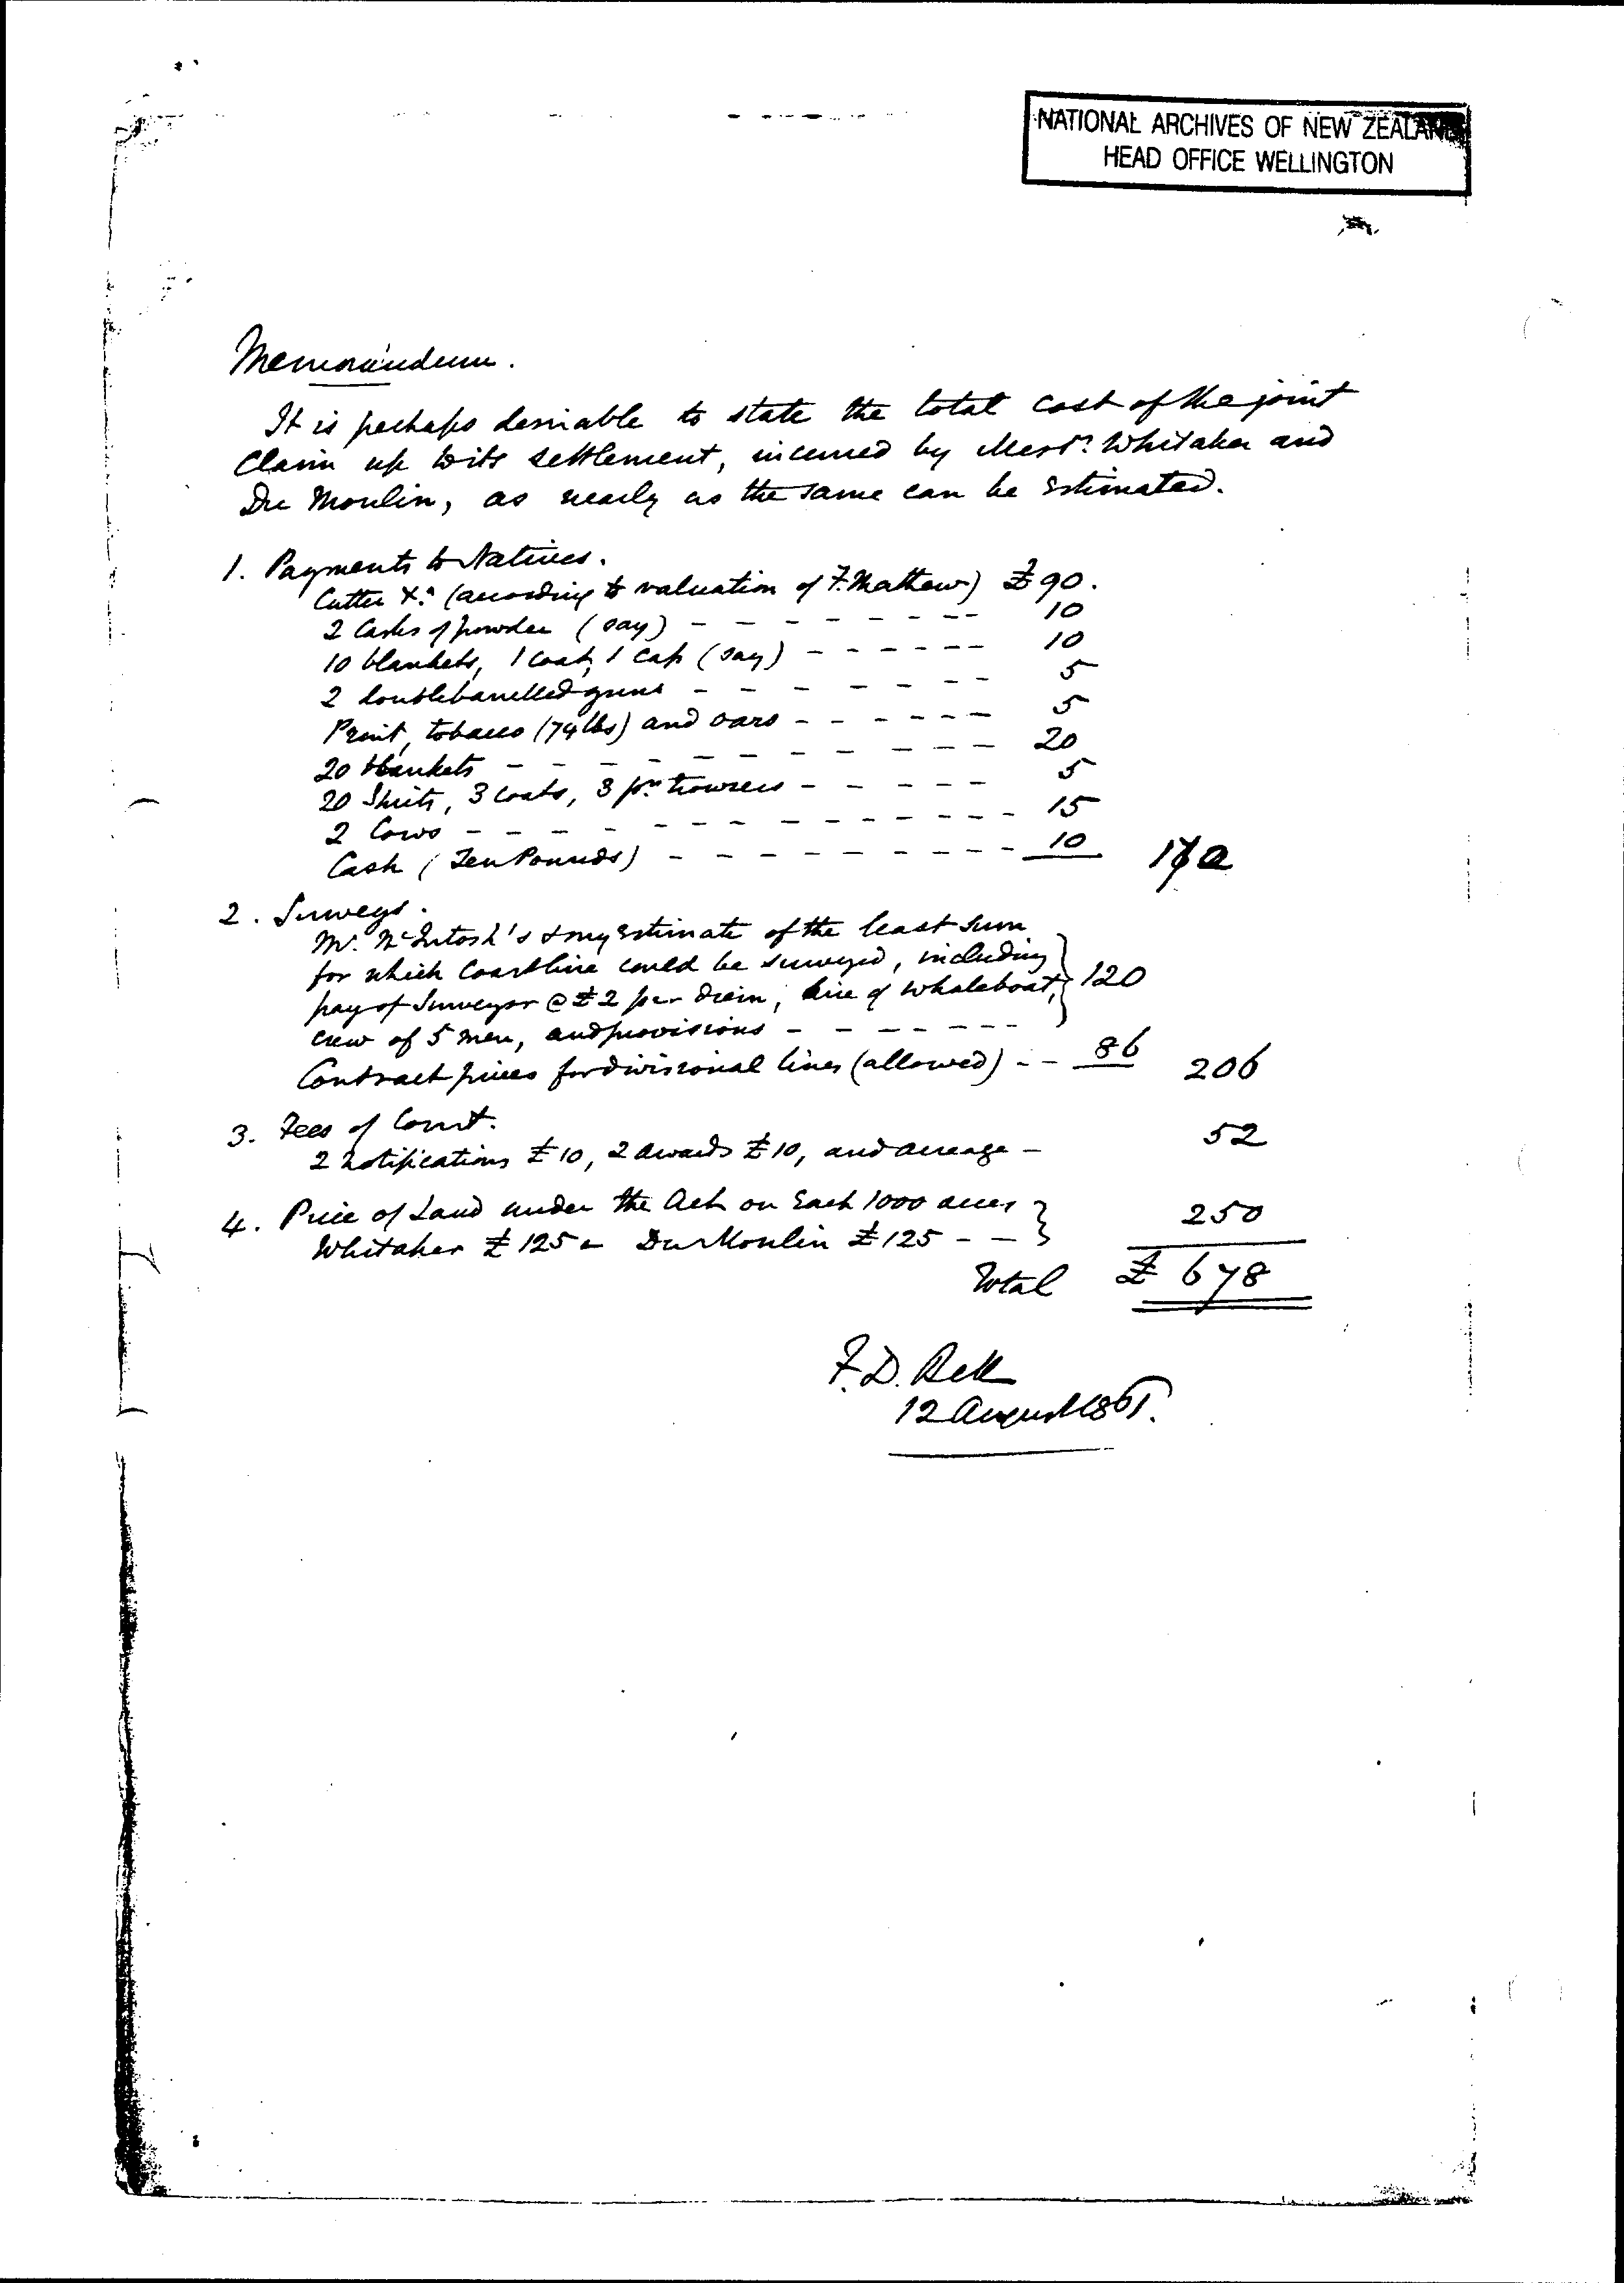 NATIONAL ARCHIVES OF NEW ZEALAND
HEAD OFFICE WELLINGTON
Memorandum.
It is perhaps desirable to state the total cost of the joint
Claim up to its settlement, incurred by Messrs. Whitaker and
Du Moulin, as nearly as the same can be Estimated.
1. Payments to Natives.
Cutter &c. (according to valuation of F. Mathew) £90.
2 Casks of powder (say) - - - - - - - - 10
10 blankets, 1 Coat, 1 Cap (say) - - - - - - 10
2 doublebarrelled guns - - - - - - - 5
Print, tobacco (74 lbs) and oars - - - - - - 5
20 blankets - - - - - - - - - 20
20 Shirts, 3 Coats, 3 pr. trowsers - - - - - 5
2 Cows - - - - - - - - - - - - 15
Cash (Ten Pounds) - - - - - - - - - 10 170
2. Surveys.
Mr. McIntosh's & my Estimate of the least sum
for which Coastline could be surveyed, including
pay of Surveyor @ £2 per diem, hire of whaleboat, } 120
crew of 5 men, and provisions - - - - - - -
Contract prices for divisional lines (allowed) - - 86 206
3. Fees of Court.
2 notifications £10, 2 awards £10, and acreage - 52
4. Price of Land under the Act on Each 1000 acres }
Whitaker £125 - Du Moulin £125 - - } 250
Total £678
F. D. Bell
12 August 1861.